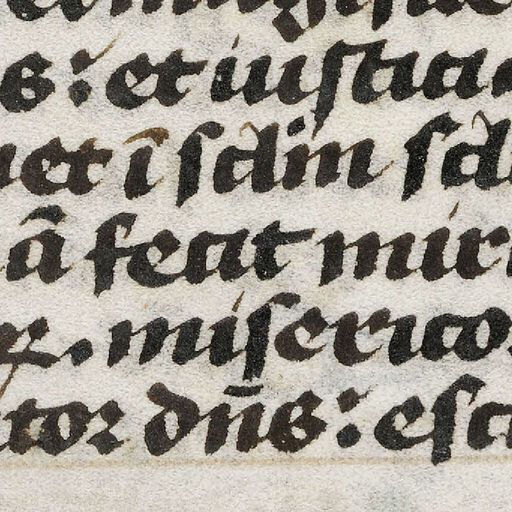 s: et iusticia
et ī sclm scl
ā fecit mir
misericor
ator dn̄s: esc